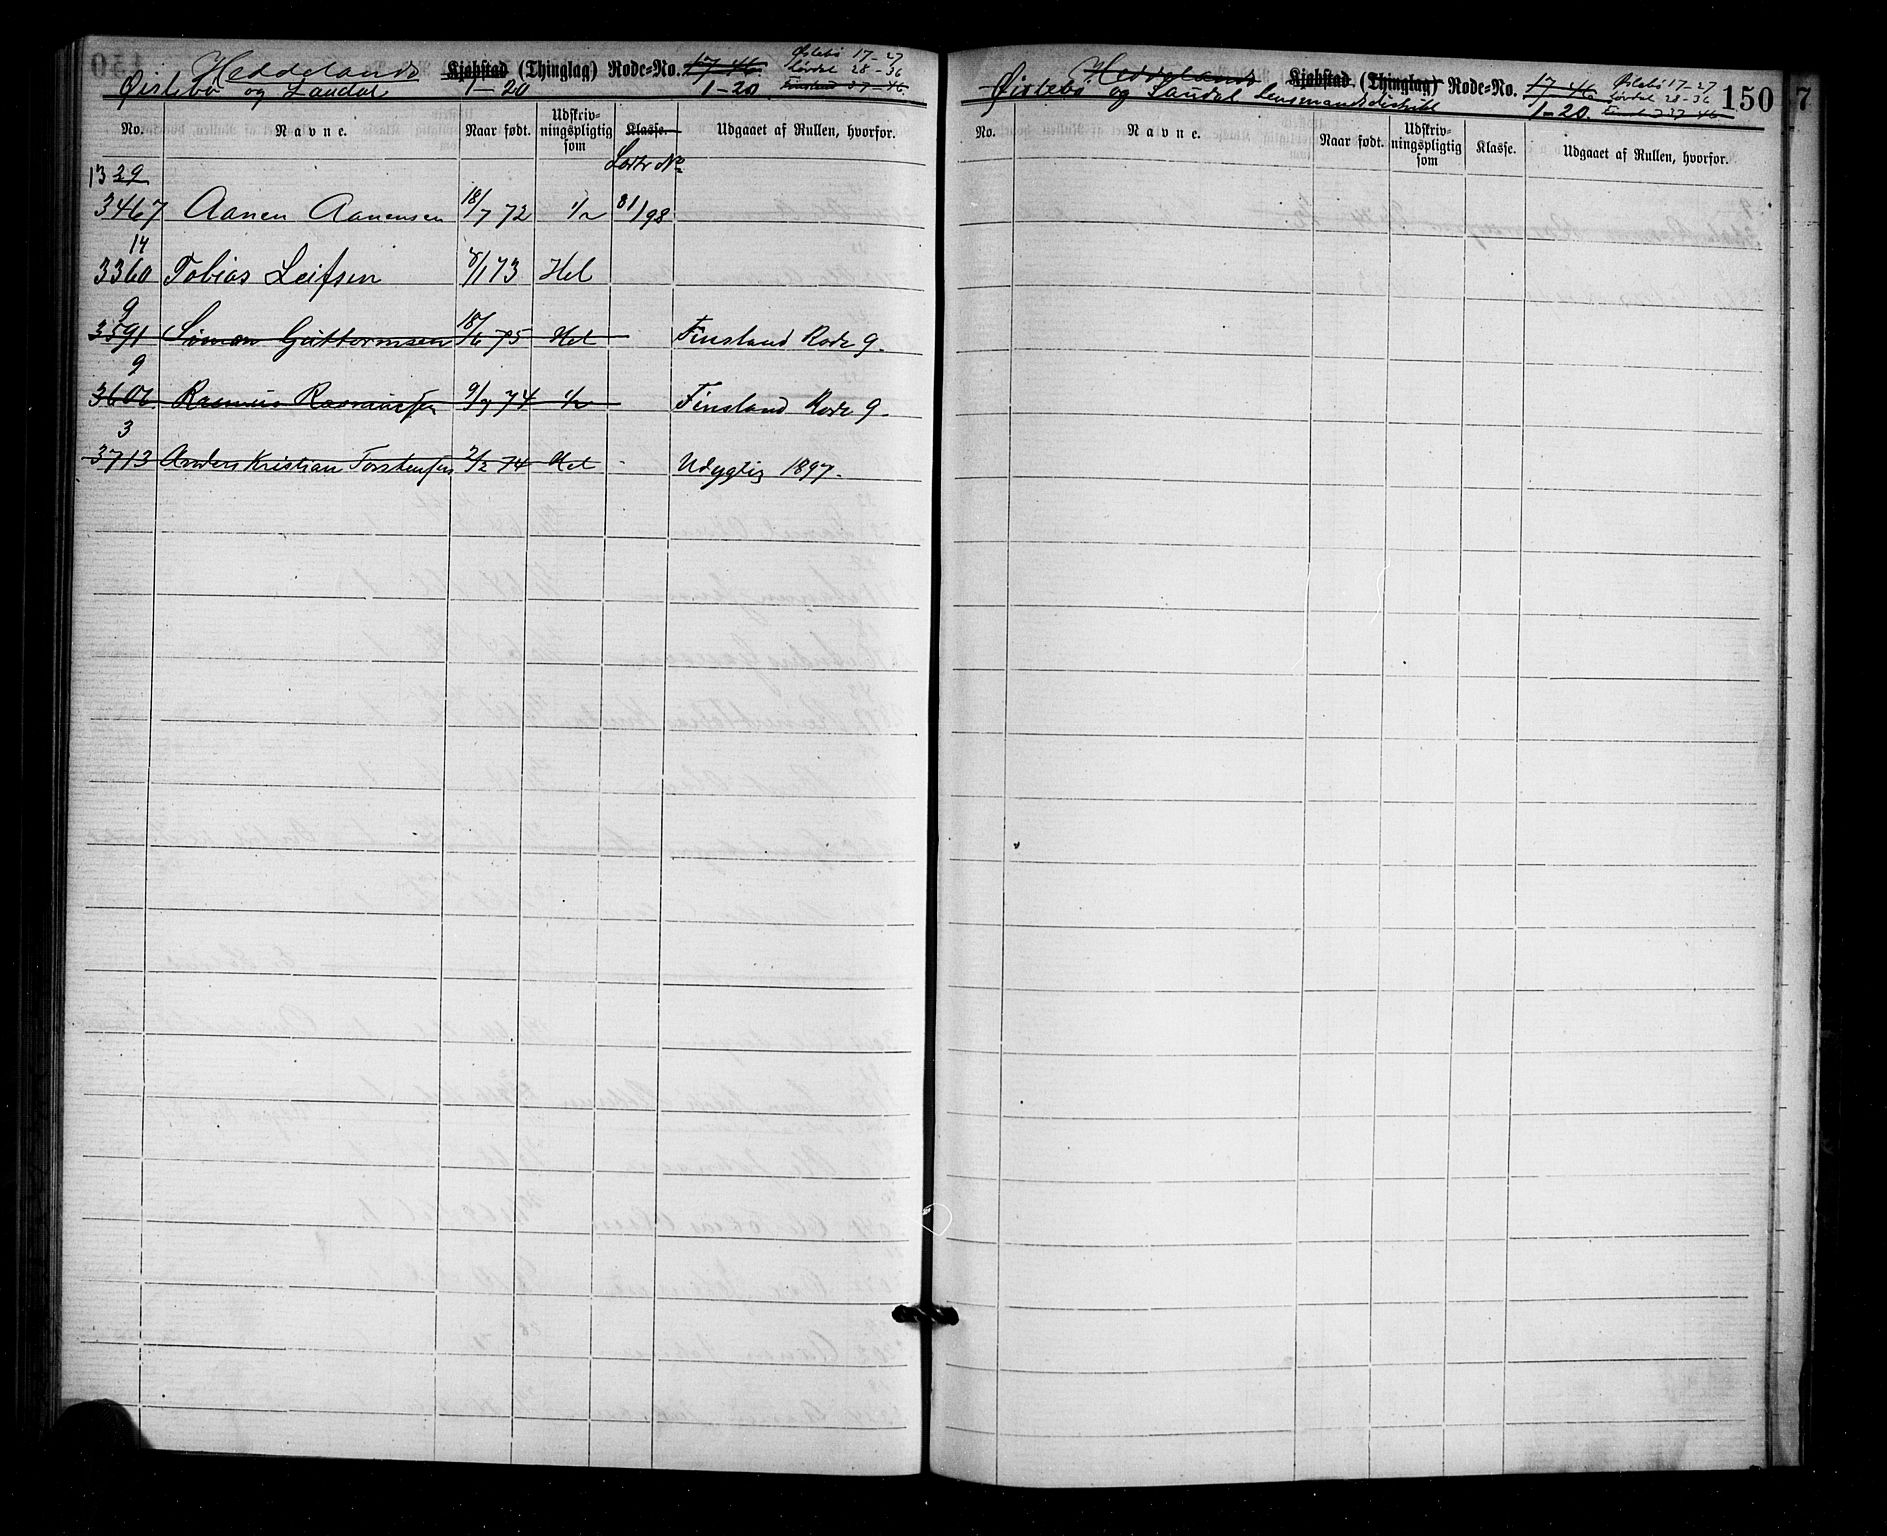 Heddelands Kjøbstad (Thinglag) Rode-No. 17-46. Øslebø 17-27
Øislebø og Laudal 1-20 1-20 Løvdal 28-36
Finsland 37-46.
No. Navne. Naar født. Udskriv-ningspligtig som Klasse. Udgaaet af Rullen, hvorfor.
Løbe No.
13 29
3467 Aanen Aanensen 18/7 72 1/2 81/98
14
3360 Tobias Leifsen 8/1 73 Hel
9
3591 Simon Guttormsen 18/6 75 Hel Finsland Rode 9.
9
3606. Rasmus Rasmussen 9/7 74 1/2 Finsland Rode 9.
3
3713 Anders Kristian Torstensen 2/2 74 Hel Udygtig 1897.
Heddelands Kjøbstad (Thinglag) Rode-No. 17-46 Øslebø 17-27
Øislebø og Laudal Lensmandsdistrikt 1-20. Løvdal 28-36
Finsland 37-46
150
7
No. Navne. Naar født. Udskriv-ningspligtig som Klasse. Udgaaet af Rullen, hvorfor.